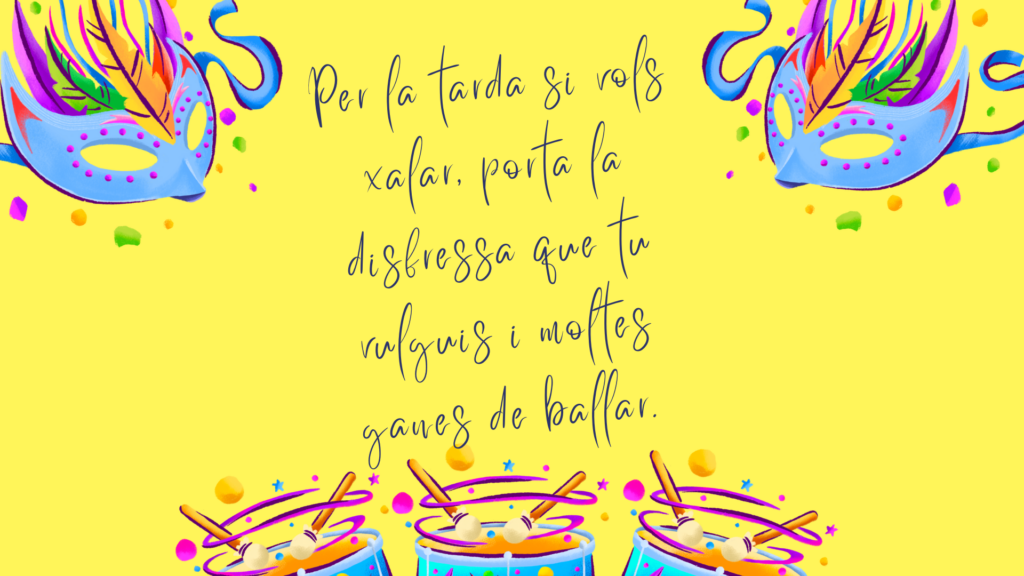 Per la tarda si vols
xalar, porta la
disfressa que tu
vulguis i moltes
ganes de ballar.